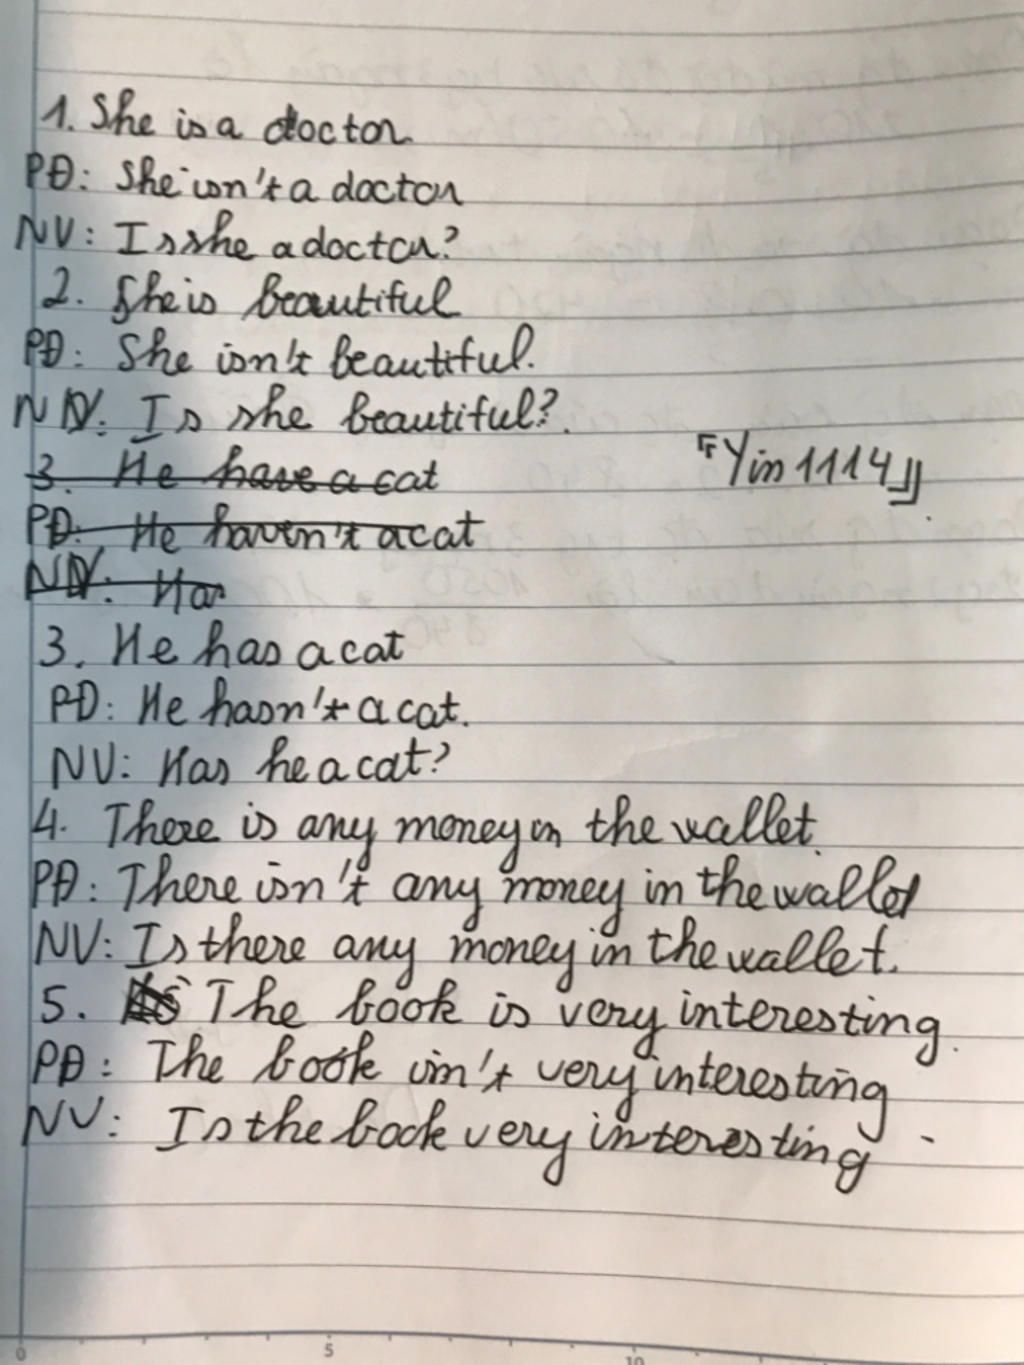 1. She is a doctor
PĐ: She isn't a doctor
NV: Is she a doctor?
2. She is beautiful
PĐ: She isn't beautiful.
NV: Is she beautiful?.
『Yin1114』.
3. He have a cat
PĐ: He haven't a cat
NV: Has
3. He has a cat
PĐ: He hasn't a cat.
NV: Has he a cat?
4. There is any money in the wallet.
PĐ: There isn't any money in the wallet
NV: Is there any money in the wallet.
5. The book is very interesting.
PĐ: The book isn't very interesting
NV: Is the book very interesting
0 5 10